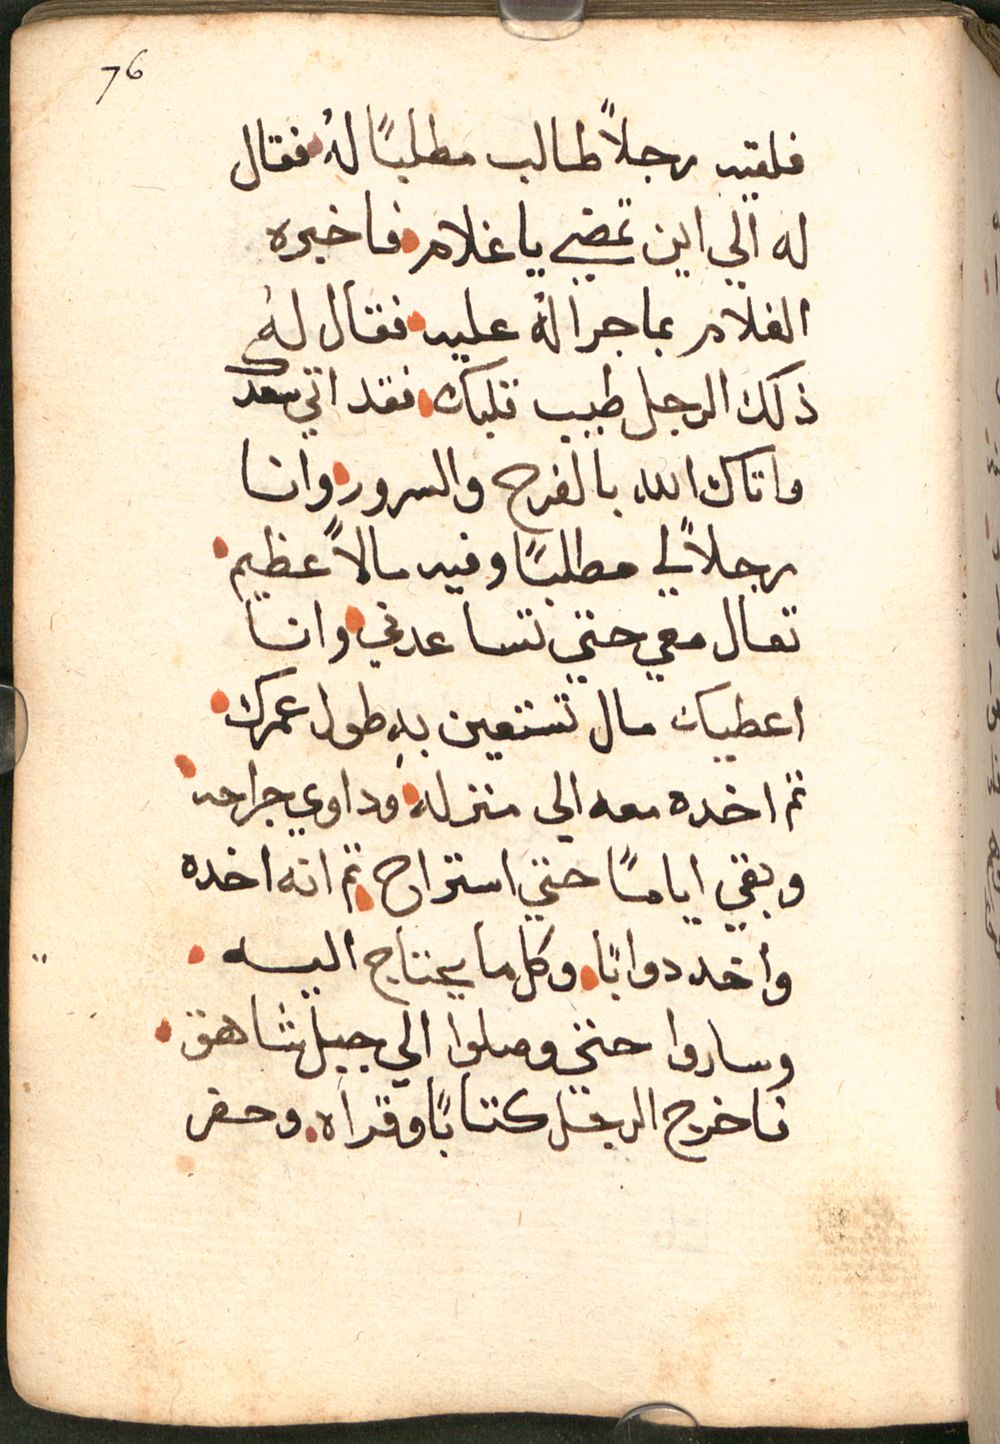 76
فلقيه رجلاً طالب مطلبًا لهُ فقال
له الي اين تمضي يا غلام فاخبره
الغلام بما جرا لهُ عليه فقال لهُ
ذلك الرجل طيب قلبك فقد اتي سعدك
واتاك الله بالفرح والسرور وانا
رجلاً لي مطلبًا وفيه مالاً عظيم
تعال معي حتي تساعدني وانا
اعطيك مال تستعين به طول عمرك
ثم اخده معه الي منزله وداوي جراحه
وبقي ايامًا حتي استراح ثم انه اخده
واخد دوابًا وكل ما يحتاج اليه
وساروا حتي وصلوا الي جبل شاهق
فاخرج الرجل كتابًا وقراه وحفر